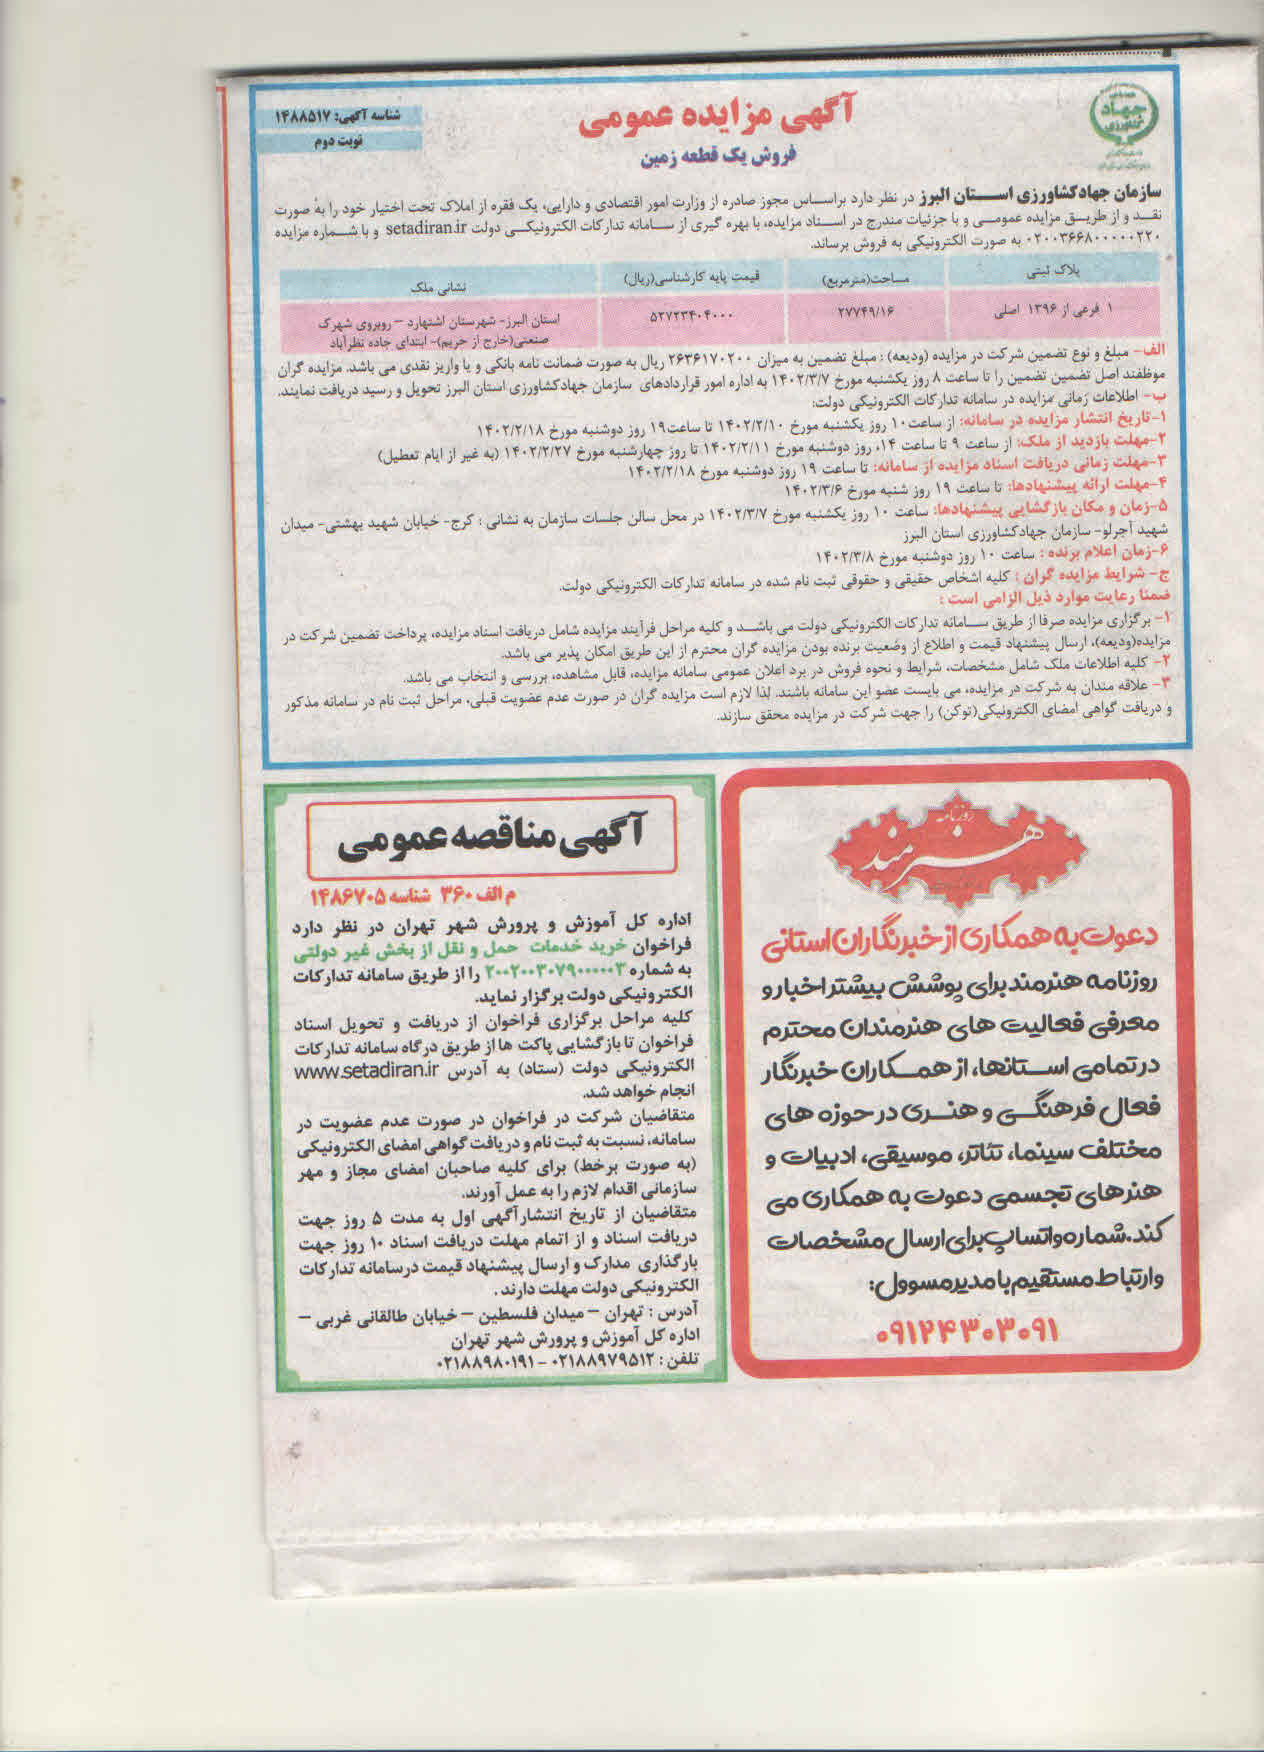 جهاد
کشاورزی
آگهی مزایده عمومی
فروش یک قطعه زمین
شناسه آگهی: ۱۴۸۸۵۱۷
نوبت دوم
سازمان جهادکشاورزی استان البرز در نظر دارد براساس مجوز صادره از وزارت امور اقتصادی و دارایی، یک فقره از املاک تحت اختیار خود را به صورت
نقد و از طریق مزایده عمومی و با جزئیات مندرج در اسناد مزایده، با بهره گیری از سامانه تدارکات الکترونیکی دولت setadiran.ir و با شماره مزایده
۰۲۰۰۳۶۶۸۰۰۰۰۰۰۲۲۰ به صورت الکترونیکی به فروش برساند.
پلاک ثبتی مساحت(مترمربع) قیمت پایه کارشناسی(ریال) نشانی ملک
۱ فرعی از ۱۳۹۶ اصلی ۲۷۷۴۹/۱۶ ۵۲۷۲۳۴۰۴۰۰۰ استان البرز- شهرستان اشتهارد – روبروی شهرک
صنعتی(خارج از حریم)- ابتدای جاده نظرآباد
الف- مبلغ و نوع تضمین شرکت در مزایده (ودیعه) : مبلغ تضمین به میزان ۲۶۳۶۱۷۰۲۰۰ ریال به صورت ضمانت نامه بانکی و یا واریز نقدی می باشد. مزایده گران
موظفند اصل تضمین تضمین را تا ساعت ۸ روز یکشنبه مورخ ۱۴۰۲/۳/۷ به اداره امور قراردادهای سازمان جهادکشاورزی استان البرز تحویل و رسید دریافت نمایند.
ب- اطلاعات زمانی مزایده در سامانه تدارکات الکترونیکی دولت:
۱-تاریخ انتشار مزایده در سامانه: از ساعت۱۰ روز یکشنبه مورخ ۱۴۰۲/۲/۱۰ تا ساعت۱۹ روز دوشنبه مورخ ۱۴۰۲/۲/۱۸
۲-مهلت بازدید از ملک: از ساعت ۹ تا ساعت ۱۴، روز دوشنبه مورخ ۱۴۰۲/۲/۱۱ تا روز چهارشنبه مورخ ۱۴۰۲/۲/۲۷ (به غیر از ایام تعطیل)
۳-مهلت زمانی دریافت اسناد مزایده از سامانه: تا ساعت ۱۹ روز دوشنبه مورخ ۱۴۰۲/۲/۱۸
۴-مهلت ارائه پیشنهادها: تا ساعت ۱۹ روز شنبه مورخ ۱۴۰۲/۳/۶
۵-زمان و مکان بازگشایی پیشنهادها: ساعت ۱۰ روز یکشنبه مورخ ۱۴۰۲/۳/۷ در محل سالن جلسات سازمان به نشانی : کرج- خیابان شهید بهشتی- میدان
شهید آجرلو- سازمان جهادکشاورزی استان البرز
۶-زمان اعلام برنده : ساعت ۱۰ روز دوشنبه مورخ ۱۴۰۲/۳/۸
ج- شرایط مزایده گران : کلیه اشخاص حقیقی و حقوقی ثبت نام شده در سامانه تدارکات الکترونیکی دولت.
ضمنا رعایت موارد ذیل الزامی است :
۱- برگزاری مزایده صرفا از طریق سامانه تدارکات الکترونیکی دولت می باشد و کلیه مراحل فرآیند مزایده شامل دریافت اسناد مزایده، پرداخت تضمین شرکت در
مزایده(ودیعه)، ارسال پیشنهاد قیمت و اطلاع از وضعیت برنده بودن مزایده گران محترم از این طریق امکان پذیر می باشد.
۲- کلیه اطلاعات ملک شامل مشخصات، شرایط و نحوه فروش در برد اعلان عمومی سامانه مزایده، قابل مشاهده، بررسی و انتخاب می باشد.
۳- علاقه مندان به شرکت در مزایده، می بایست عضو این سامانه باشند. لذا لازم است مزایده گران در صورت عدم عضویت قبلی، مراحل ثبت نام در سامانه مذکور
و دریافت گواهی امضای الکترونیکی(توکن) را جهت شرکت در مزایده محقق سازند.
روزنامه
هنرمند
دعوت به همکاری از خبرنگاران استانی
روزنامه هنرمند برای پوشش بیشتر اخبار و
معرفی فعالیت های هنرمندان محترم
در تمامی استانها، از همکاران خبرنگار
فعال فرهنگی و هنری در حوزه های
مختلف سینما، تئاتر، موسیقی، ادبیات و
هنرهای تجسمی دعوت به همکاری می
کند.شماره واتساپ برای ارسال مشخصات
و ارتباط مستقیم با مدیر مسوول:
۰۹۱۲۴۳۰۳۰۹۱
آگهی مناقصه عمومی
م الف ۳۶۰ شناسه ۱۴۸۶۷۰۵
اداره کل آموزش و پرورش شهر تهران در نظر دارد
فراخوان خرید خدمات حمل و نقل از بخش غیر دولتی
به شماره ۲۰۰۲۰۰۳۰۷۹۰۰۰۰۰۳ را از طریق سامانه تدارکات
الکترونیکی دولت برگزار نماید.
کلیه مراحل برگزاری فراخوان از دریافت و تحویل اسناد
فراخوان تا بازگشایی پاکت ها از طریق درگاه سامانه تدارکات
الکترونیکی دولت (ستاد) به آدرس www.setadiran.ir
انجام خواهد شد.
متقاضیان شرکت در فراخوان در صورت عدم عضویت در
سامانه، نسبت به ثبت نام و دریافت گواهی امضای الکترونیکی
(به صورت برخط) برای کلیه صاحبان امضای مجاز و مهر
سازمانی اقدام لازم را به عمل آورند.
متقاضیان از تاریخ انتشارآگهی اول به مدت ۵ روز جهت
دریافت اسناد و از اتمام مهلت دریافت اسناد ۱۰ روز جهت
بارگذاری مدارک و ارسال پیشنهاد قیمت درسامانه تدارکات
الکترونیکی دولت مهلت دارند .
آدرس : تهران – میدان فلسطین – خیابان طالقانی غربی –
اداره کل آموزش و پرورش شهر تهران
تلفن : ۰۲۱۸۸۹۷۹۵۱۲ - ۰۲۱۸۸۹۸۰۱۹۱